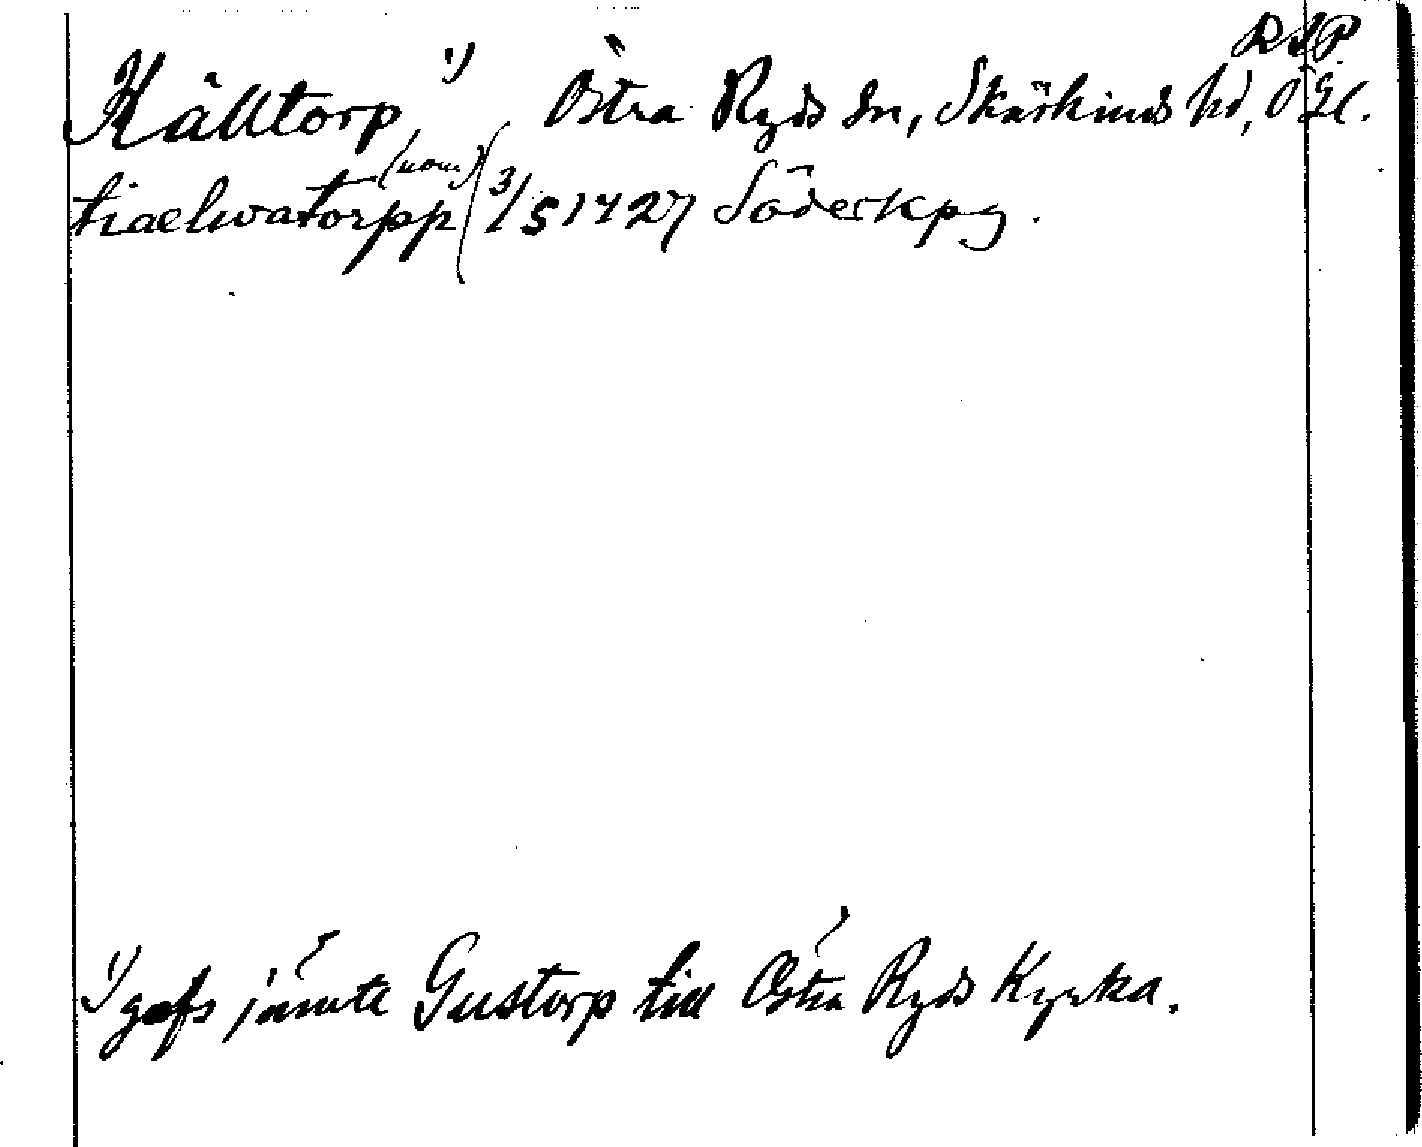 RAP.
Källtorp, 1) Östra Ryds sn, Skärkinds hd, Ögl.
tiaelwatorpp (nom.) 3/5 1427 Söderkpg.
1) gafs jämte Gustorp till Östra Ryds Kyrka.